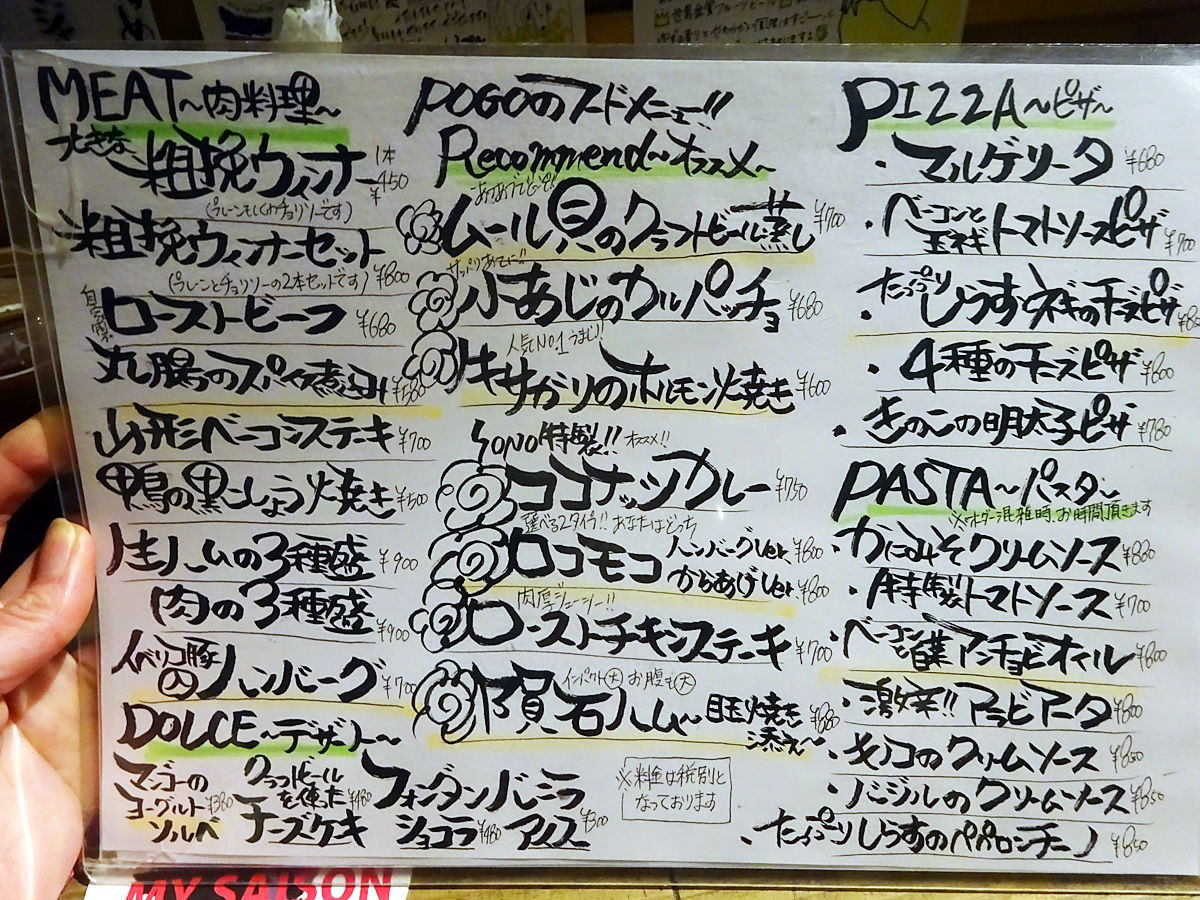 MEAT〜肉料理〜
大きな粗挽ウィンナー 1本 ¥450
(プレーンもしくわチョリソーです)
粗挽ウィンナーセット ¥800
(プレーンとチョリソーの2本セットです)
自家製ローストビーフ ¥680
丸腸のスパイス煮込み ¥580
山形ベーコンステーキ ¥700
鴨の黒こしょう焼き ¥500
生ハムの3種盛 ¥900
肉の3種盛 ¥900
イベリコ豚入ハンバーグ ¥700
DOLCE〜デザート〜
マンゴーのヨーグルトソルベ ¥380
クラフトビールを使ったチーズケーキ ¥480
フォンダンショコラ ¥480
バニラアイス ¥300
POGOのフードメニュー!!
Recommend〜オススメ〜
あつあつでどーぞ!
ムール貝のクラフトビール蒸し ¥700
サッパリあてに!!
小あじのカルパッチョ ¥680
人気NO.1うまし!!
牛サガリのホルモン焼き ¥600
SONO特製!! オススメ!!
ココナッツカレー ¥750
選べる2タイプ!! あなたはどっち
ロコモコ ハンバーグver ¥800
からあげver ¥800
肉厚ジューシー!!
ローストチキンステーキ ¥700
インパクト大 お腹も大
隕石ハム〜目玉焼き添え〜 ¥880
※料金は税別となっております
PIZZA〜ピザ〜
・マルゲリータ ¥680
・ベーコンと玉ネギトマトソースピザ ¥700
・たっぷりしらすとネギのチーズピザ
・4種のチーズピザ ¥800
・きのこの明太子ピザ ¥780
PASTA〜パスタ〜
※オーダー混雑時、お時間頂きます
・かにみそクリームソース ¥880
・特製トマトソース ¥700
・ベーコンと白菜アンチョビオイル ¥800
・激辛!!アラビアータ ¥800
・キノコのクリームソース ¥850
・バジルのクリームソース ¥850
・たっぷりしらすのペペロンチーノ ¥850
MY SAISON